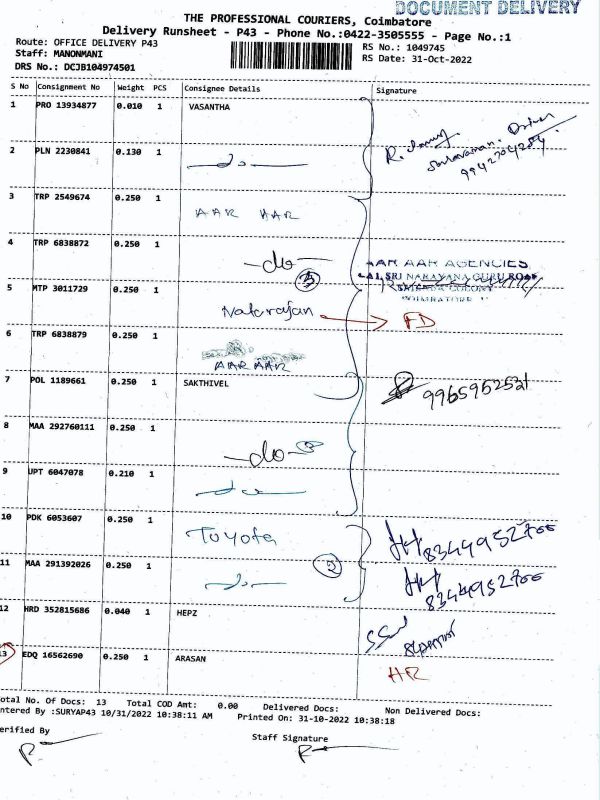 DOCUMENT DELIVERY
THE PROFESSIONAL COURIERS, Coimbatore
Delivery Runsheet - P43 - Phone No.:0422-3505555 - Page No.:1
Route: OFFICE DELIVERY P43
Staff: MANONMANI
DRS No.: DCJB104974501
RS No.: 1049745
RS Date: 31-Oct-2022
S No Consignment No Weight PCS Consignee Details Signature
1 PRO 13934877 0.010 1 VASANTHA
Saravanan. Driver
9942704254
2 PLN 2230841 0.130 1 -do-
3 TRP 2549674 0.250 1 AAR AAR
4 TRP 6838872 0.250 1 -do-
AAR AAR AGENCIES
SRI NARAYANA GURU ROAD
COLONY
COIMBATORE
5 MTP 3011729 0.250 1 Natarajan FD
6 TRP 6838879 0.250 1 AAR AAR
7 POL 1189661 0.250 1 SAKTHIVEL 9965952531
8 MAA 292760111 0.250 1 -do-
9 UPT 6047078 0.210 1 -do-
10 PDK 6053607 0.250 1 Toyota 8344952700
2
11 MAA 291392026 0.250 1 -do- 8344952700
12 HRD 352815686 0.040 1 HEPZ
13 EDQ 16562690 0.250 1 ARASAN HR
otal No. Of Docs: 13 Total COD Amt: 0.00 Delivered Docs: Non Delivered Docs:
ntered By :SURYAP43 10/31/2022 10:38:11 AM Printed On: 31-10-2022 10:38:18
erified By
Staff Signature